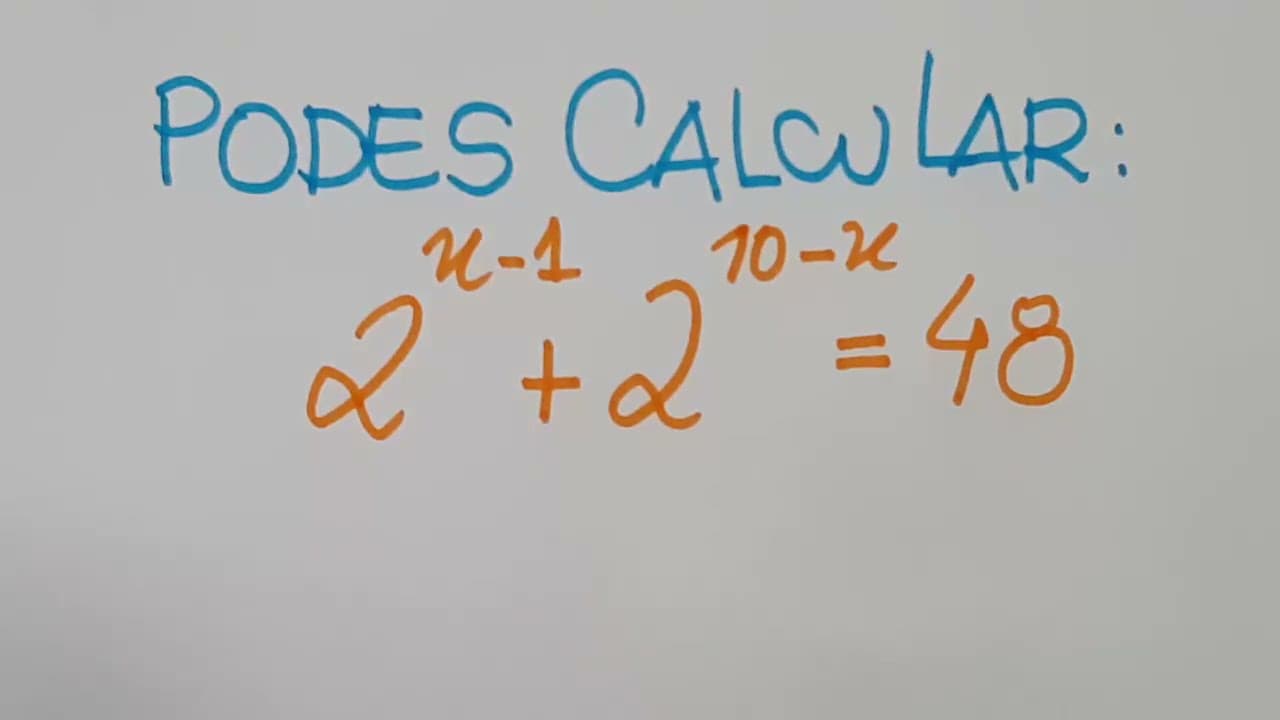 PODES CALCULAR:
2^{x-1} + 2^{10-x} = 48